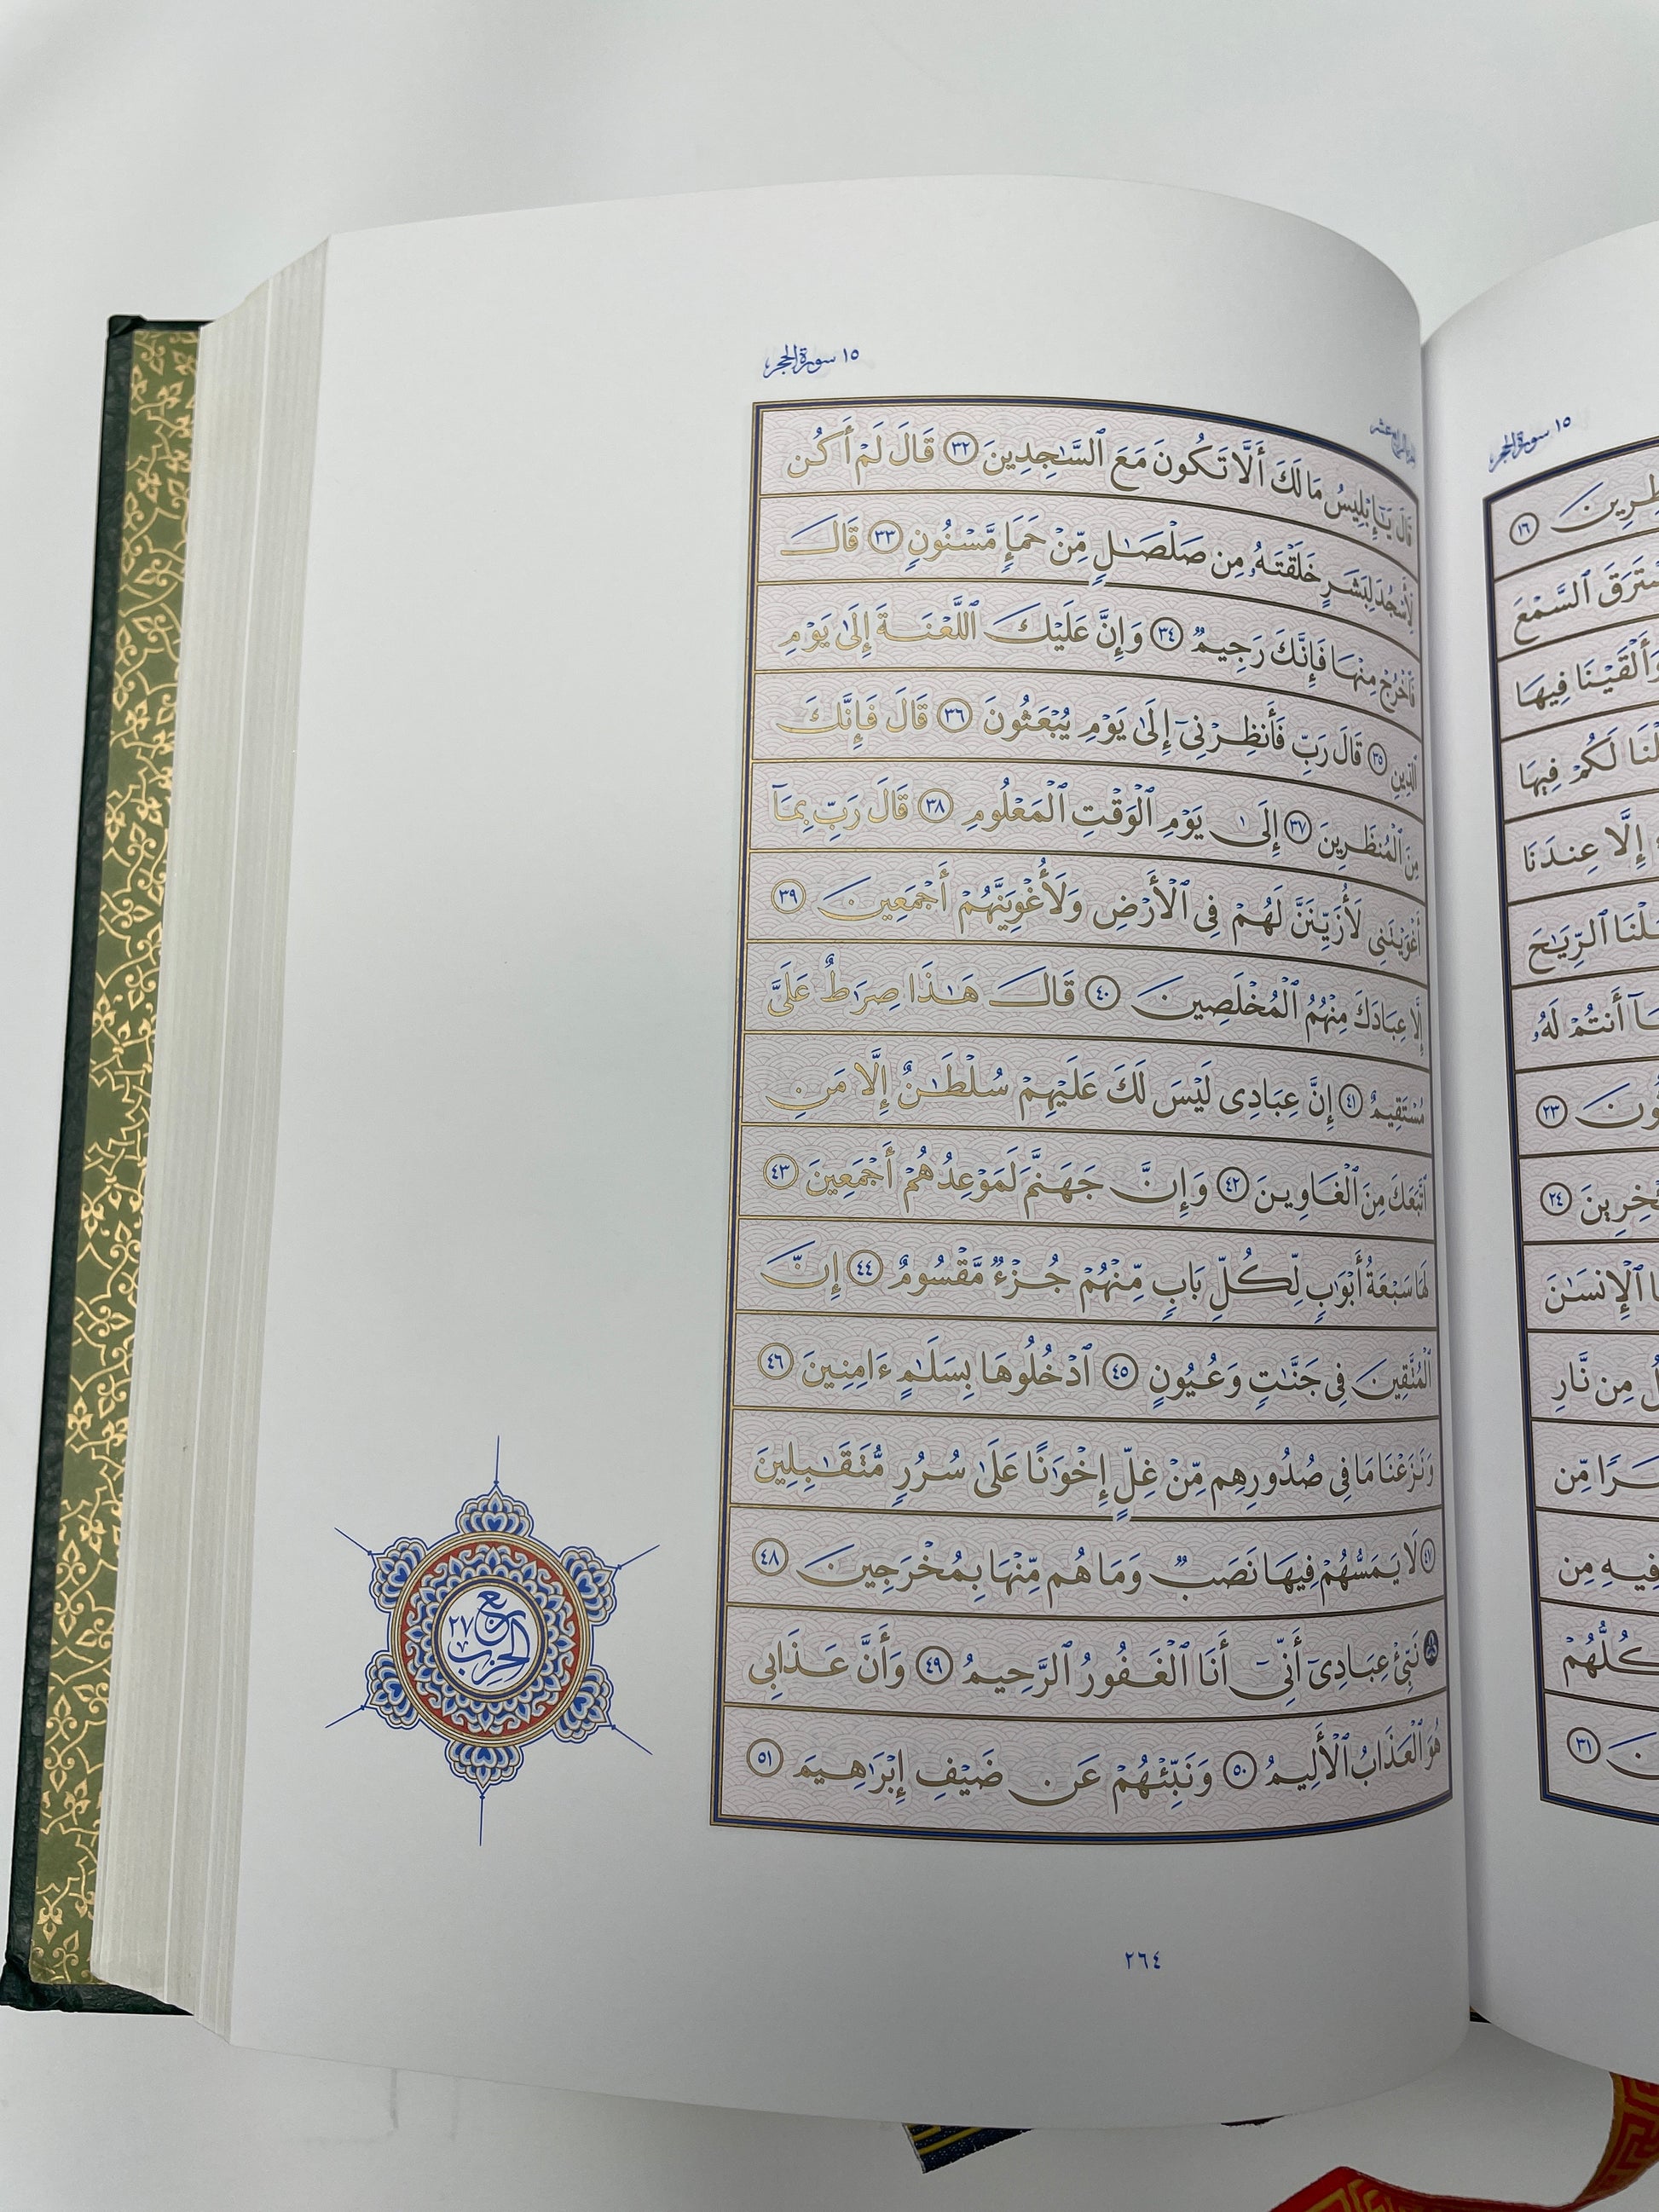 ١٥ سورة الحجر
الجزء الرابع عشر
قَالَ يَٰٓإِبۡلِيسُ مَا لَكَ أَلَّا تَكُونَ مَعَ ٱلسَّٰجِدِينَ ٣٢ قَالَ لَمۡ أَكُن
لِّأَسۡجُدَ لِبَشَرٍ خَلَقۡتَهُۥ مِن صَلۡصَٰلٖ مِّنۡ حَمَإٖ مَّسۡنُونٖ ٣٣ قَالَ
فَٱخۡرُجۡ مِنۡهَا فَإِنَّكَ رَجِيمٞ ٣٤ وَإِنَّ عَلَيۡكَ ٱللَّعۡنَةَ إِلَىٰ يَوۡمِ
ٱلدِّينِ ٣٥ قَالَ رَبِّ فَأَنظِرۡنِيٓ إِلَىٰ يَوۡمِ يُبۡعَثُونَ ٣٦ قَالَ فَإِنَّكَ
مِنَ ٱلۡمُنظَرِينَ ٣٧ إِلَىٰ يَوۡمِ ٱلۡوَقۡتِ ٱلۡمَعۡلُومِ ٣٨ قَالَ رَبِّ بِمَآ
أَغۡوَيۡتَنِي لَأُزَيِّنَنَّ لَهُمۡ فِي ٱلۡأَرۡضِ وَلَأُغۡوِيَنَّهُمۡ أَجۡمَعِينَ ٣٩
إِلَّا عِبَادَكَ مِنۡهُمُ ٱلۡمُخۡلَصِينَ ٤٠ قَالَ هَٰذَا صِرَٰطٌ عَلَيَّ
مُسۡتَقِيمٌ ٤١ إِنَّ عِبَادِي لَيۡسَ لَكَ عَلَيۡهِمۡ سُلۡطَٰنٌ إِلَّا مَنِ
ٱتَّبَعَكَ مِنَ ٱلۡغَاوِينَ ٤٢ وَإِنَّ جَهَنَّمَ لَمَوۡعِدُهُمۡ أَجۡمَعِينَ ٤٣
لَهَا سَبۡعَةُ أَبۡوَٰبٖ لِّكُلِّ بَابٖ مِّنۡهُمۡ جُزۡءٞ مَّقۡسُومٌ ٤٤ إِنَّ
ٱلۡمُتَّقِينَ فِي جَنَّٰتٖ وَعُيُونٍ ٤٥ ٱدۡخُلُوهَا بِسَلَٰمٍ ءَامِنِينَ ٤٦
وَنَزَعۡنَا مَا فِي صُدُورِهِم مِّنۡ غِلٍّ إِخۡوَٰنًا عَلَىٰ سُرُرٖ مُّتَقَٰبِلِينَ
٤٧ لَا يَمَسُّهُمۡ فِيهَا نَصَبٞ وَمَا هُم مِّنۡهَا بِمُخۡرَجِينَ ٤٨
۞ نَبِّئۡ عِبَادِيٓ أَنِّيٓ أَنَا ٱلۡغَفُورُ ٱلرَّحِيمُ ٤٩ وَأَنَّ عَذَابِي
هُوَ ٱلۡعَذَابُ ٱلۡأَلِيمُ ٥٠ وَنَبِّئۡهُمۡ عَن ضَيۡفِ إِبۡرَٰهِيمَ ٥١
ربع
الحزب ٢٧
٢٦٤
١٥ سورة الحجر
١٦
ٱلسَّمۡعَ
وَأَلۡقَيۡنَا فِيهَا
لَكُمۡ فِيهَا
إِلَّا عِندَنَا
ٱلرِّيَٰحَ
أَنتُمۡ لَهُۥ
٢٣
٢٤
ٱلۡإِنسَٰنَ
مِن نَّارِ
مِّن
فِيهِ مِن
كُلُّهُمۡ
٣١